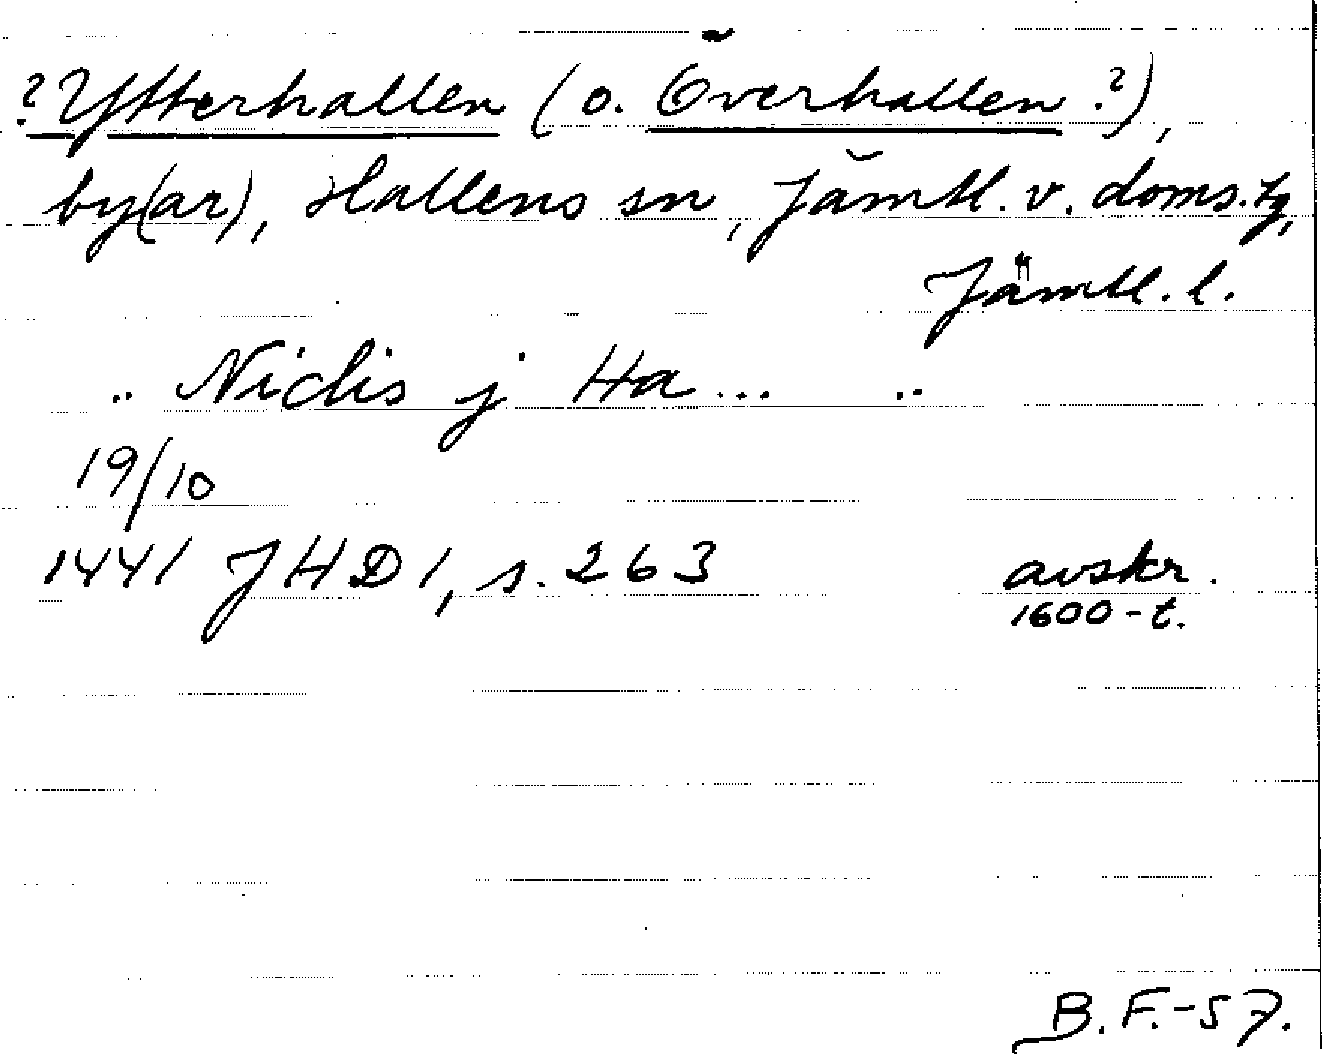 ? Ytterhallen (o. Överhallen ?),
by(ar), Hallens sn, Jämtl. v. doms.,
Jämtl. l.
.. Niclis j Ha... ..
19/10
1441 JHD 1, s. 263 avskr.
1600-t.
B. F. -57.